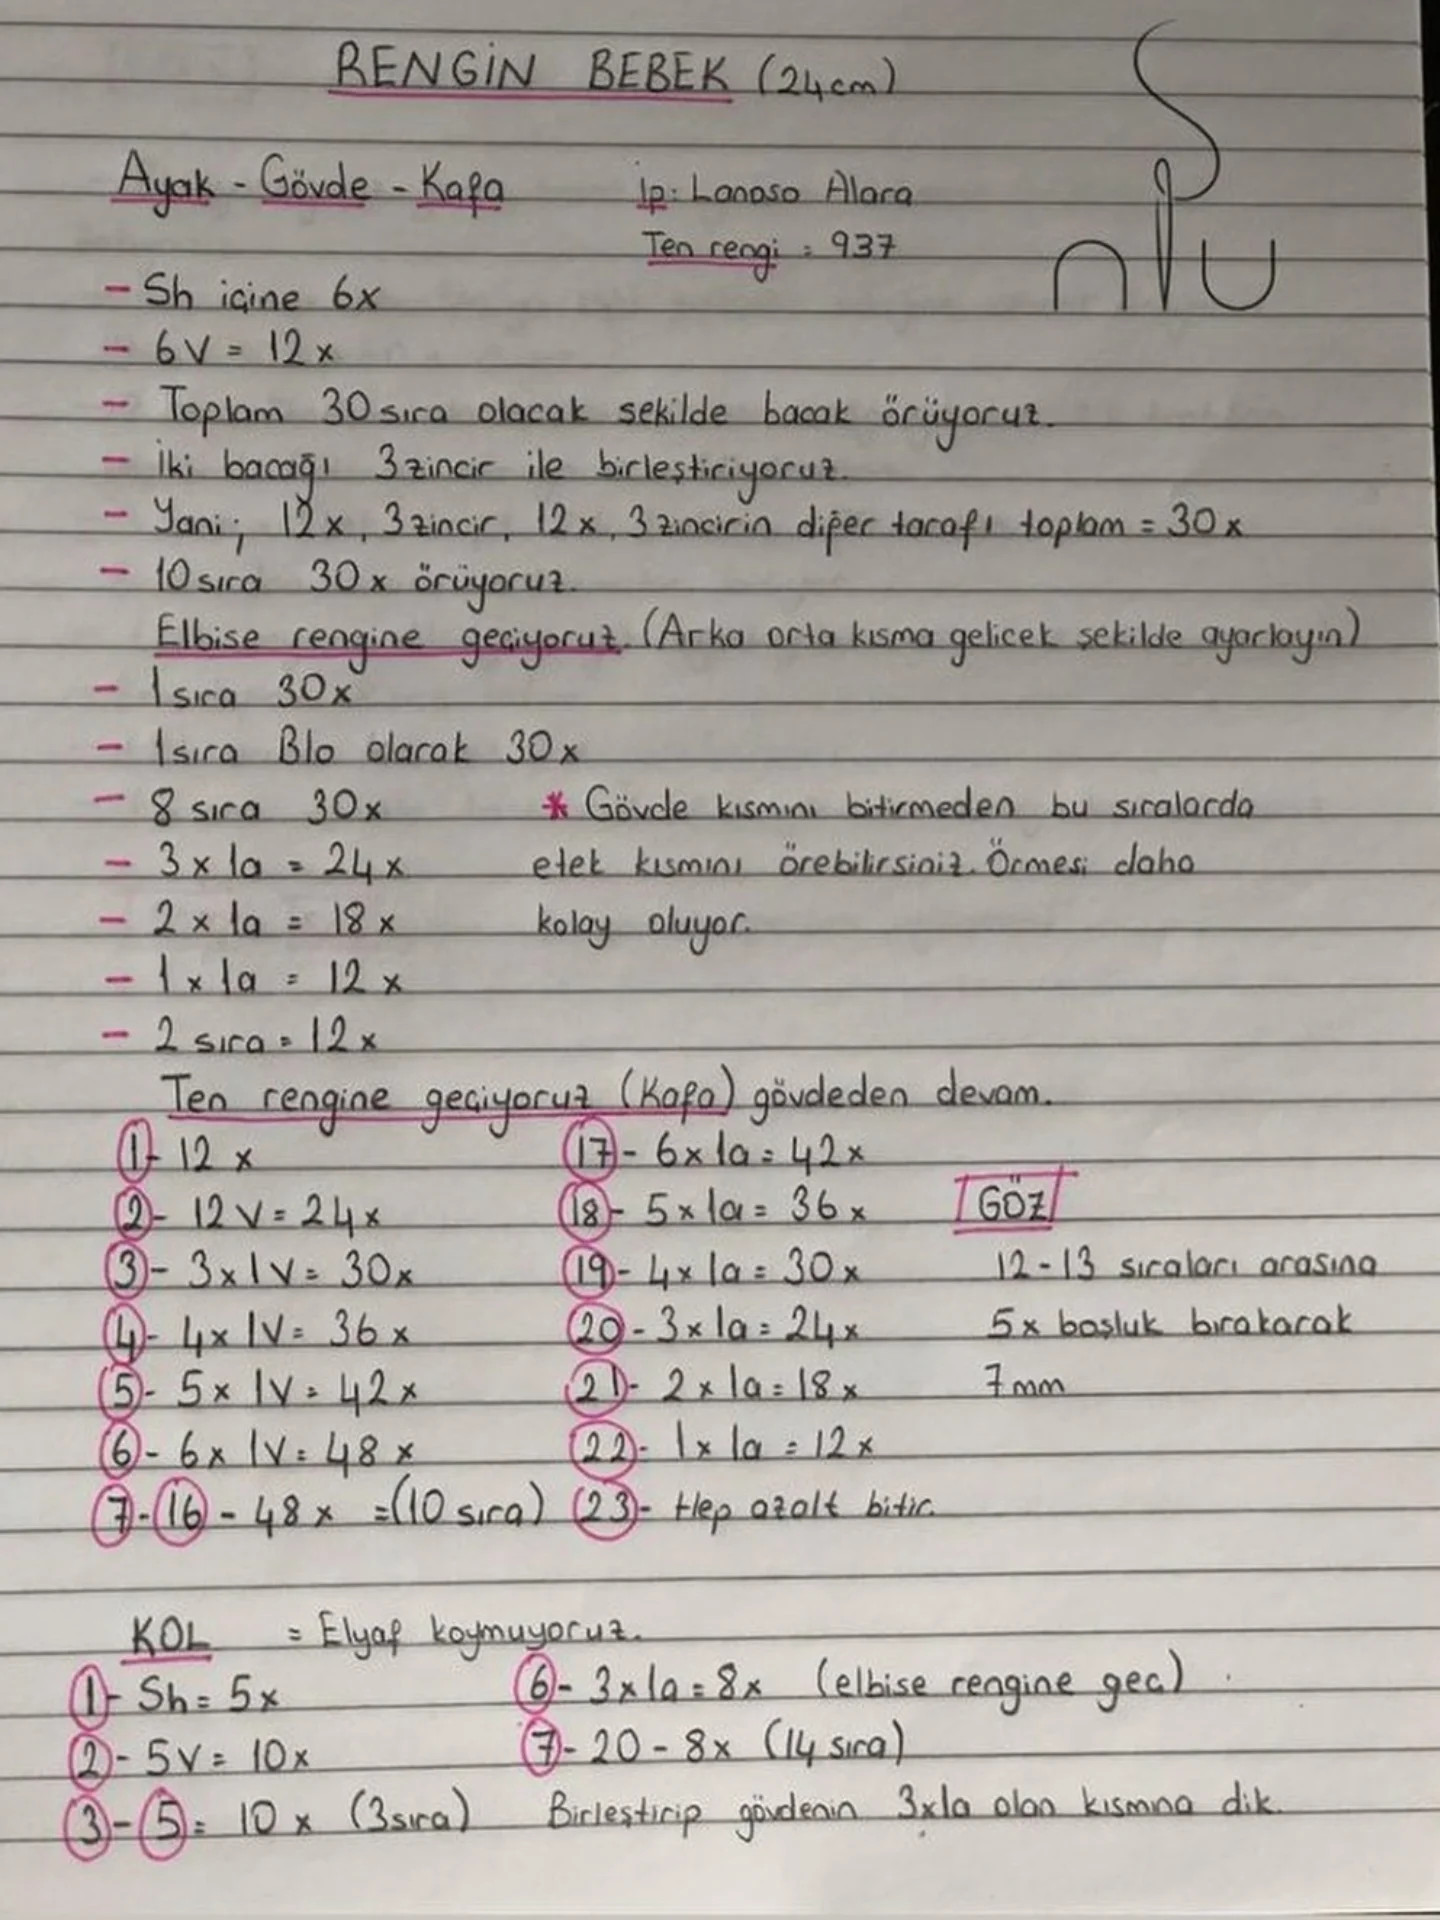 RENGİN BEBEK (24cm)
Ayak - Gövde - Kafa
İp: Lanoso Alara
Ten rengi = 937
- Sh içine 6x
- 6V = 12x
- Toplam 30 sıra olacak sekilde bacak örüyoruz.
- İki bacağı 3 zincir ile birleştiriyoruz.
- Yani; 12x, 3 zincir, 12x, 3 zincirin diğer tarafı toplam = 30x
- 10 sıra 30x örüyoruz.
Elbise rengine geçiyoruz. (Arka orta kısma gelicek şekilde ayarlayın)
- 1 sıra 30x
- 1 sıra Blo olarak 30x
- 8 sıra 30x
- 3x1a = 24x
- 2x1a = 18x
- 1x1a = 12x
- 2 sıra = 12x
* Gövde kısmını bitirmeden bu sıralarda
etek kısmını örebilirsiniz. Örmesi daha
kolay oluyor.
Ten rengine geçiyoruz (Kafa) gövdeden devam.
1- 12x
2- 12V = 24x
3- 3x1V = 30x
4- 4x1V = 36x
5- 5x1V = 42x
6- 6x1V = 48x
7-16 - 48x = (10 sıra)
17- 6x1a = 42x
18- 5x1a = 36x
19- 4x1a = 30x
20- 3x1a = 24x
21- 2x1a = 18x
22- 1x1a = 12x
23- Hep azalt bitir.
GÖZ
12-13 sıraları arasına
5x boşluk bırakarak
7mm
KOL = Elyaf koymuyoruz.
1- Sh = 5x
2- 5V = 10x
3-5 = 10x (3 sıra)
6- 3x1a = 8x (elbise rengine geç)
7- 20 - 8x (14 sıra)
Birleştirip gövdenin 3x1a olan kısmına dik.